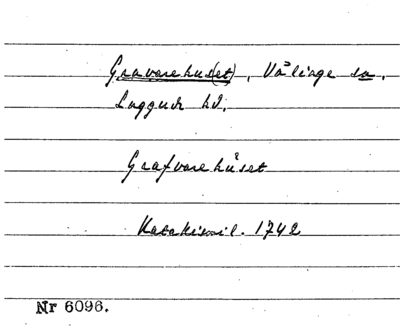 Gravarehus(et), Vålinge sn.
Luggude hd.
Grafvarehuset
Katekismil. 1742
Nr 6096.